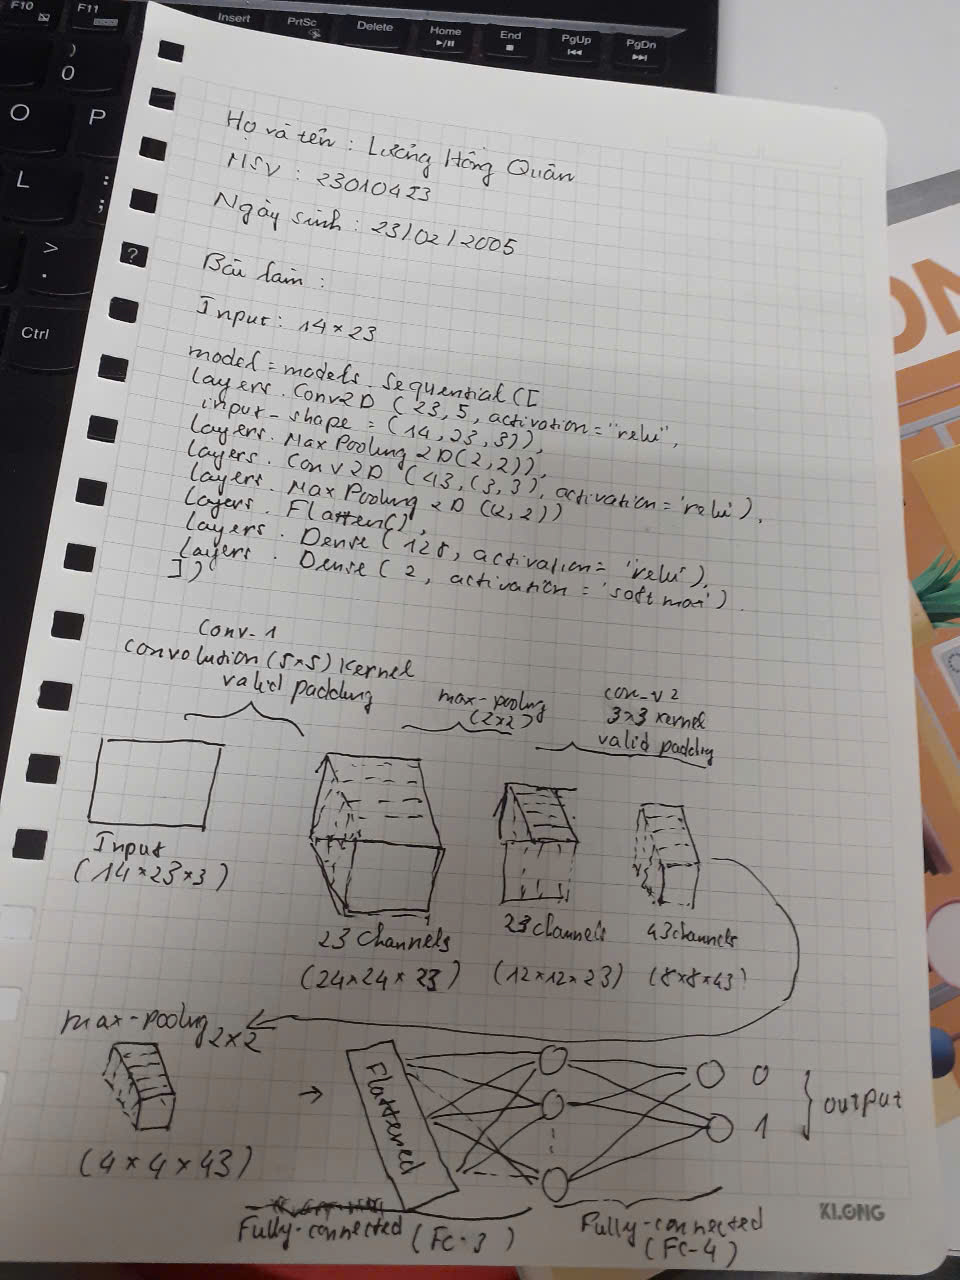 F10
F11
Insert
PrtSc
Delete
Home
End
PgUp
PgDn
)
0
O
P
L
:
;
>
.
?
Ctrl
Họ và tên : Lương Hồng Quân
MSV : 23010423
Ngày sinh : 23/02/2005
Bài làm :
Input : 14×23
model = models. Sequential ([
layers. Conv2D (23, 5, activation = "relu",
input-shape = (14, 23, 3)),
layers. MaxPooling 2D(2,2)),
layers. Conv2D (43, (3, 3), activation = 'relu'),
layers. MaxPooling 2D (2, 2))
layers. Flatten(),
layers. Dense (128, activation = 'relu'),
layers. Dense (2, activation = 'softmax').
])
Conv-1
convolution (5×5) Kernel
valid padding
max-pooling
(2×2)
con-v2
3×3 kernel
valid padding
Input
(14×23×3)
23 channels
(24×24×23)
23 channels
(12×12×23)
43 channels
(8×8×43)
max-pooling 2×2
(4×4×43)
→
Flattened
0
1
output
Fully-connected (FC-3)
Fully-connected
(FC-4)
KLONG
ON